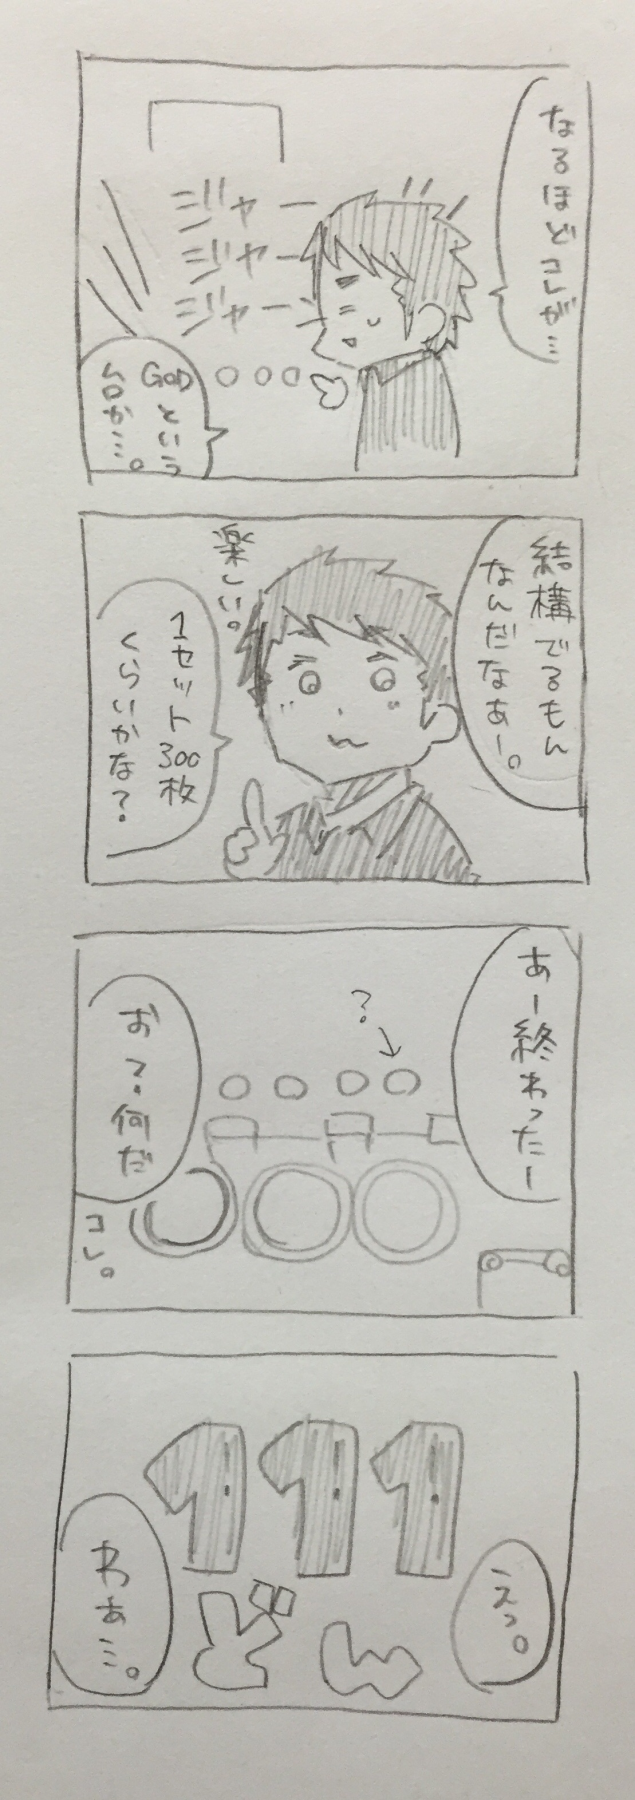 なるほどコレが…
ジャー
ジャー
ジャー
GODという
台か…。
結構でるもん
なんだなあー。
楽しい。
1セット300枚
くらいかな?
あー終わったー
?
お?何だ
コレ。
111
えっ。
どん
わぁ…。